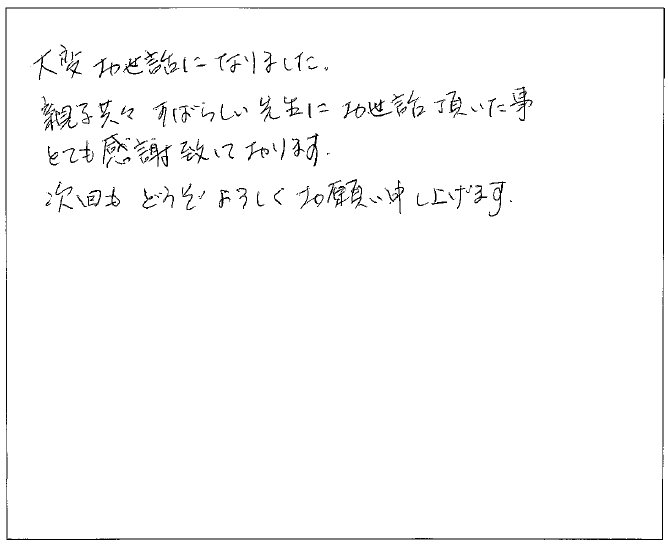 大変お世話になりました。
親子共々 すばらしい先生に お世話頂いた事
とても感謝致しております。
次回も どうぞ よろしく お願い申し上げます。